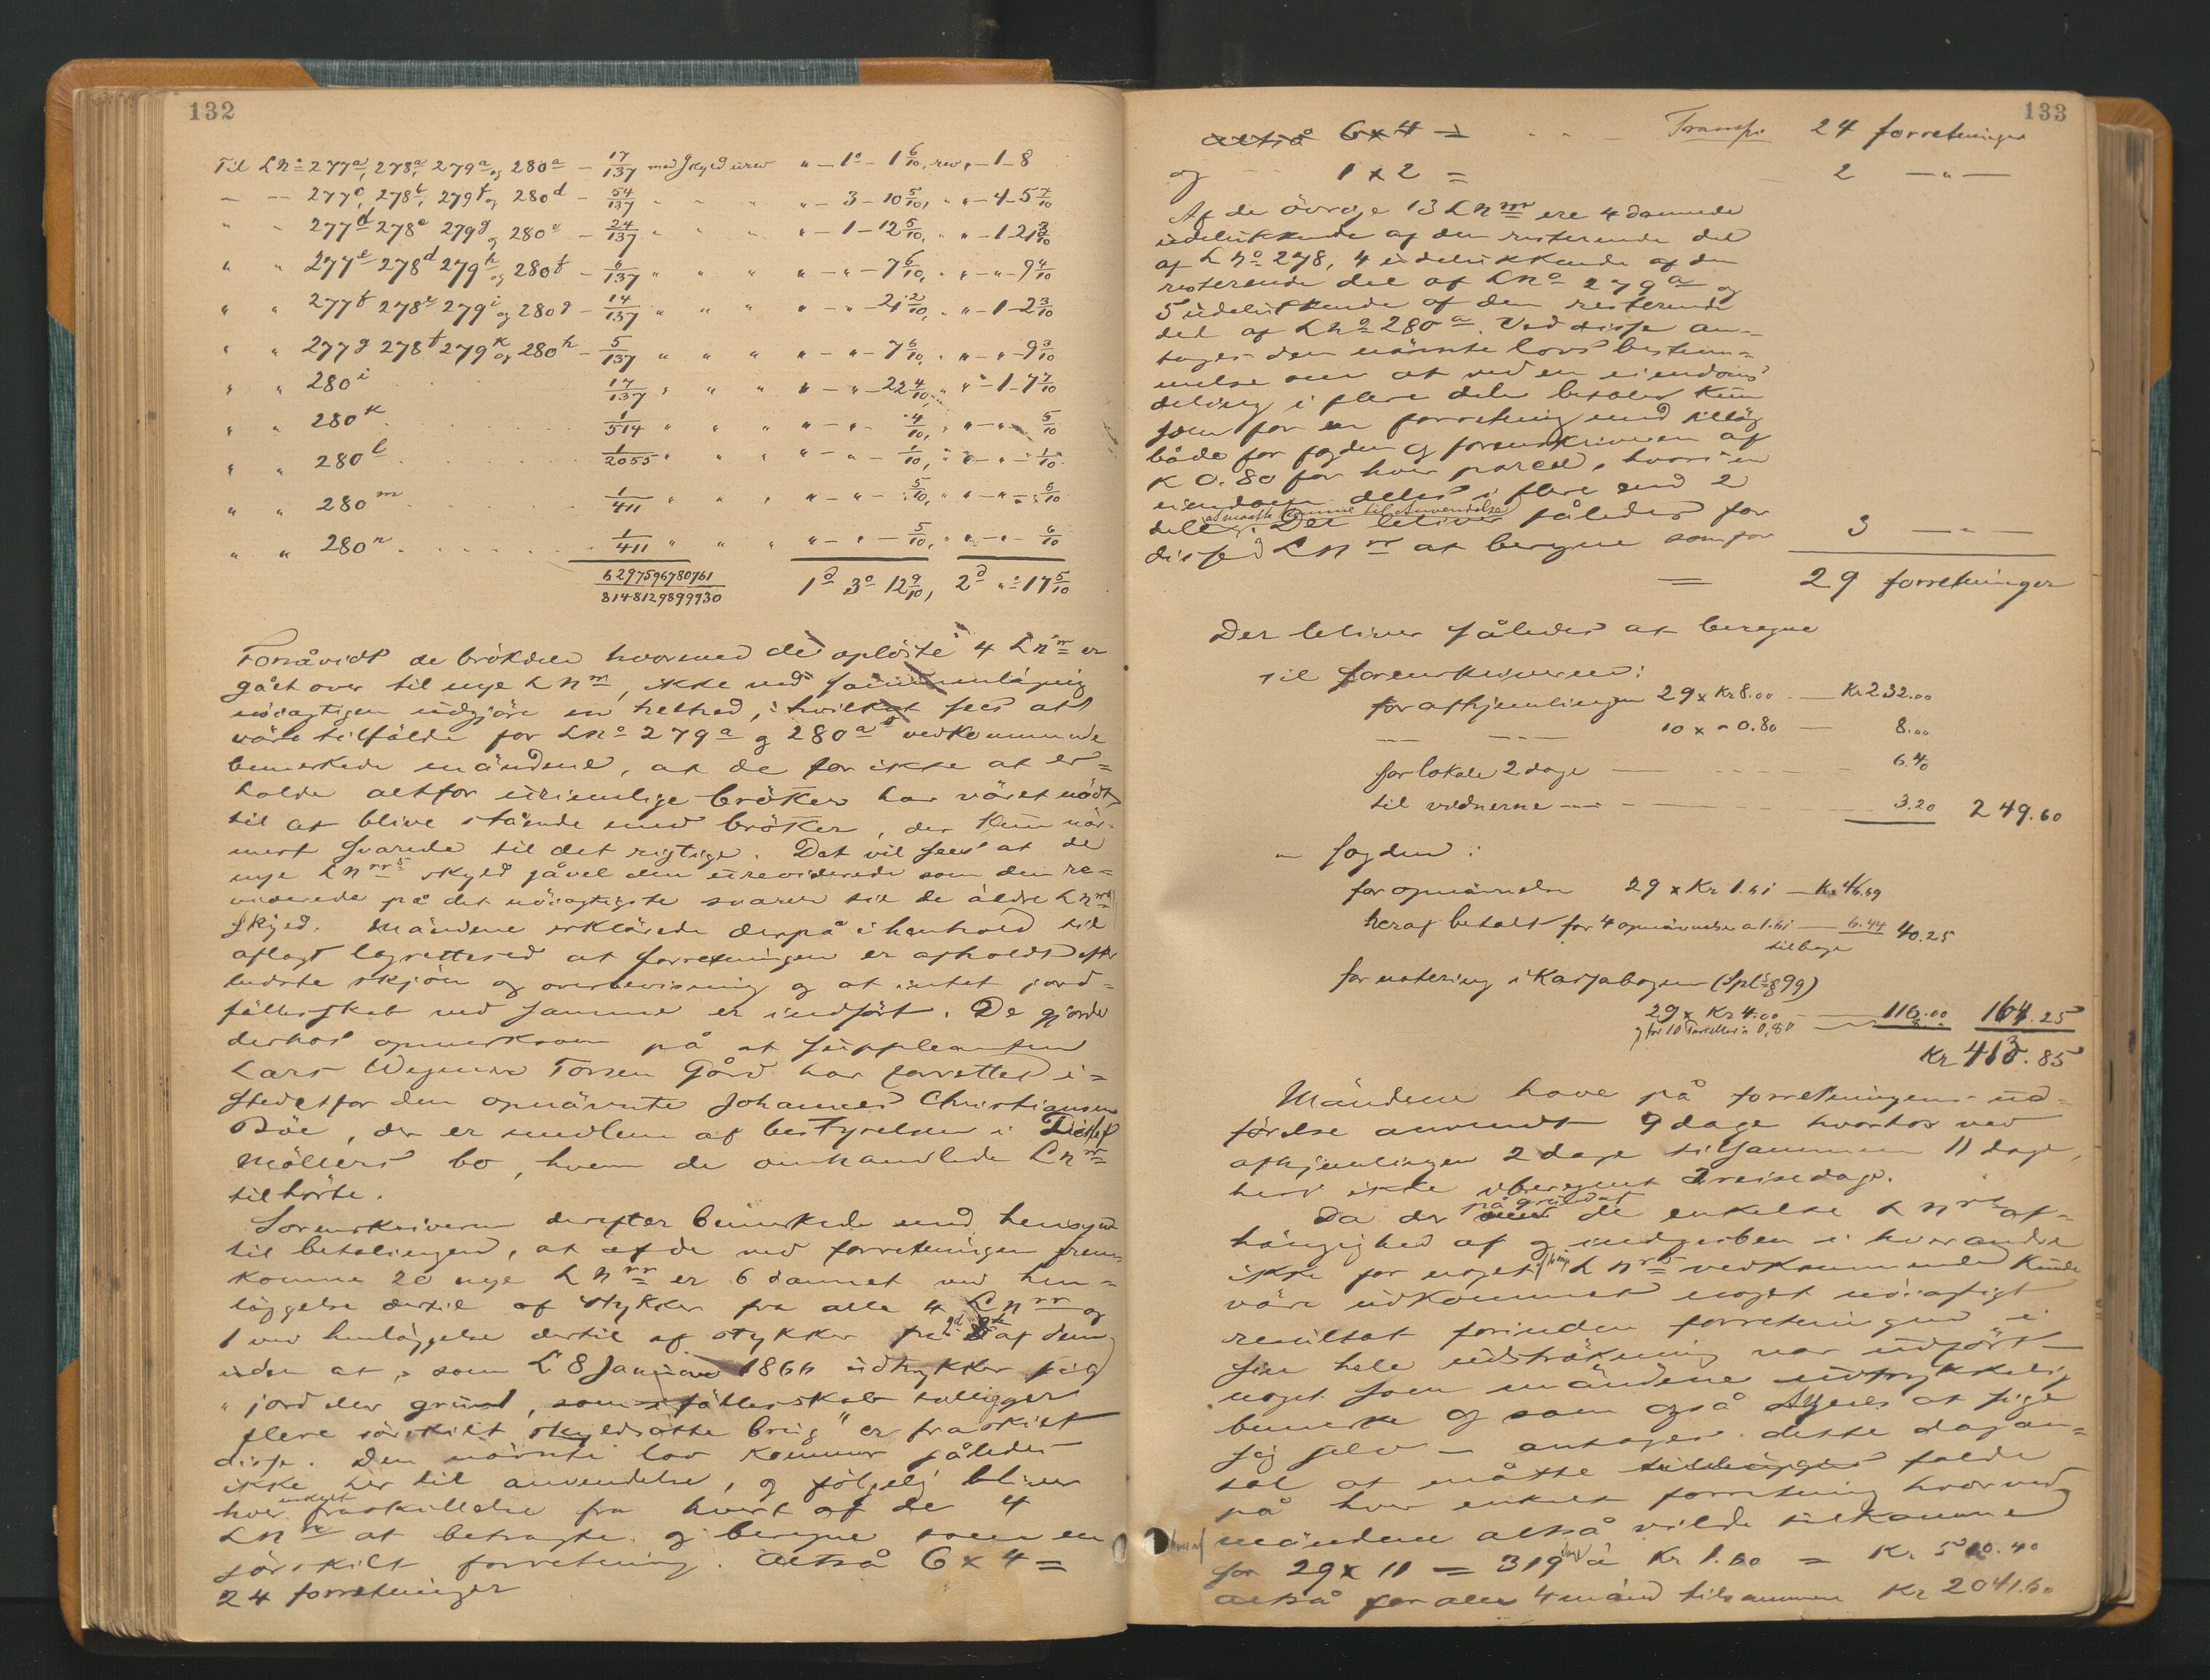 132
Til L№ 277a, 278a, 279a og 280a – 17/137 med Skyld urev " – 1o – 1 6/10, rev " – 1 – 8
– – 277c, 278b, 279f og 280d – 54/137 " " " " – 3 – 10 5/10, " " – 4 – 5 7/10
" " 277d 278c 279g og 280e – 24/137 " " " " – 1 – 12 5/10, " " – 1 – 21 3/10
" " 277e 278d 279h og 280f – 6/137 " " " " – " – 7 6/10, " " – " – 9 4/10
" " 277f 278e 279i og 280g – 14/137 " " " " – " – 21 2/10, " " – 1 – 2 3/10
" " 277g 278f 279k og 280h – 5/137 " " " " – " – 7 6/10, " " – " – 9 3/10
" " 280i 17/137 " " " " – " – 22 4/10, " " – 1 – 7 7/10
" " 280k 1/514 " " " " – " – 4/10, " " – " – 5/10
" " 280l 1/2055 " " " " – " – 1/10, " " – " – 1/10
" " 280m 1/411 " " " " – " – 5/10, " " – " – 6/10
" " 280n 1/411 " " " " – " – 5/10, " " – " – 6/10
6297596780761/8148129899930 1d 3o 12 9/10, 2d "o 17 5/10
Forsåvidt de brökdele hvormed de oplöste 4 Lnr er
gået over til nye Lnr, ikke ved sammenlägning
nöiagtigen udgjöre en helhed, hvilket sees at
väre tilfälde for Lno 279a og 280a vedkommende
bemerkede mändene, at de for ikke at er=
holde altfor urimelige bröker har väret nödt
til at blive stående med bröker, der kun när-
mest svarede til det rigtige. Det vil sees at de
nye Lnrs skyld såvel den ureviderede som den re-
viderede på det nöiagtigste svarer til de äldre Lnrs
skyld. Mändene erklärede derpå i henhold til
aflagt lagrettesed at forretningen er afholdt efter
bedste skjön og overbevisning og at intet jord=
fällesskab ved samme er indfört. De gjorde
derhos opmerksom på at suppleanten
Lars Wegner Torsen Gård har forrettet i=
stedetfor den opnävnte Johannes Christiansen
Böe, der er medlem af bestyrelsen i Ditlef
Möllers bo, hvem de omhandlede Lnr
tilhörte.
Sorenskriveren derefter bemerkede med hensyn
til betalingen, at af de ved forretningen frem=
komne 20 nye Lnr er 6 dannet ved hen=
läggelse dertil af stykker fra alle 4 Lnr og
1 ved henläggelse dertil af stykker fra 2 af dem,
uden at, som L 8 Januar 1866 udtrykker sig
"jord eller grund, som i fällesskab tilligger
flere särskilt skyldsatte brug" er fraskilt
disse. Den nävnte lov kommer således
ikke her til anvendelse, og fölgelig bliver
hver enkelt fraskillelse fra hvert af de 4
Lnr at betragte og beregne som en
särskilt forretning. Altså 6 x 4 =
24 forretninger
133
altså 6 x 4 = Transp. 24 forretninger
og 1 x 2 = 2 – " –
Af de övrige 13 Lnr ere 4 dannede
udelukkende af den resterende del
af Lno 278, 4 udelukkende af den
resterende del af Lno 279a og
5 udelukkende af den resterende
del af Lno 280a. Ved disse an=
tages den nävnte lovs bestem=
melse om at ved en eiendoms
deling i flere dele betales kun
som for en forretning med tilläg
både for fogden og sorenskriveren af
K 0.80 for hver parcel, hvori en
eiendom deles i flere end 2
dele, at maatte komme til Anvendelse. Det bliver således for
disse Lnr at beregne som for 3 – " –
= 29 forretninger
Der bliver således at beregne
til sorenskriveren:
for afhjemlingen 29 x Kr 8.00 – Kr 232.00
– – 10 x " 0.80 – 8.00
for lokale 2 dage – 6.40
til vidnerne – 3.20 249.60
" fogden:
for opnävnelse 29 x Kr 1.61 – Kr 46.69
heraf betalt for 4 opnävnelser a 1.61 – 6.44 40.25
tilbage
for notering i Kassabogen (Spl § 99)
29 x Kr 4.00 – 116.00 164.25
og for 10 Parceller a 0,80 – 8.
Kr 413.85
Mändene have på forretningens ud=
förelse anvendt 9 dage hvorhos ved
afhjemlingen 2 dage tilsammen 11 dage,
heri ikke iberegnet 2 reisedage.
Da der på grund af de enkelte Lnrs af=
hängighed af og indgriben i hverandre
ikke for noget Lnrs vedkommende kunde
väre udkommet noget nöiagtigt
resultat forinden forretningen i
sin hele udsträkning var udfört –
noget som mändene udtrykkelig
bemerke og som også synes at sige
sig selv – antages dette dagan=
tal at måtte falde
på hver enkelt forretning hvorved
mändene altså vilde tilkomme
for 29 x 11 = 319 dage a Kr 1.60 = Kr 510.40
Altså for alle 4 mänd tilsammen Kr 2041.60